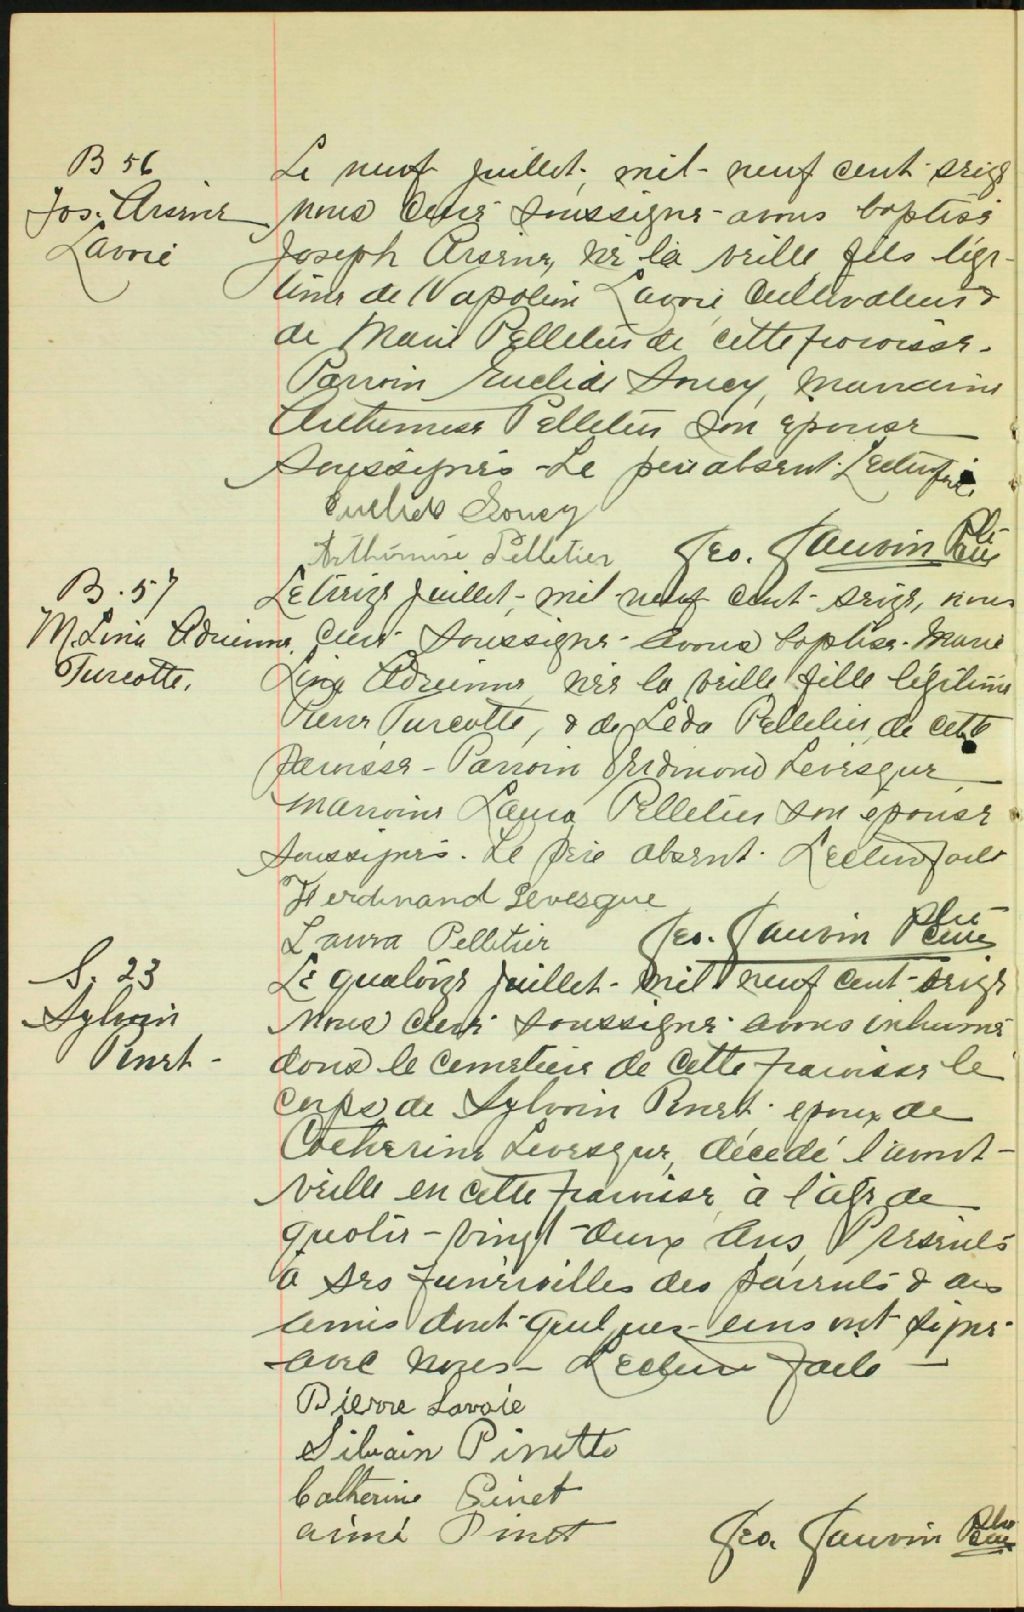 B 56
Jos. Arsène
Lavoie
Le neuf juillet, mil-neuf cent-seize
nous Curé soussigné avons baptisé
Joseph Arsène, né la veille, fils légi-
time de Napoléon Lavoie, cultivateur &
de Marie Pelletier de cette paroisse.
Parrain Euclide Soucy, marraine
Arthemise Pelletier son épouse
soussignés - Le père absent. Lecture faite.
Euclide Soucy
Arthémise Pelletier
Geo. Gauvin Ptre
Curé
B. 57
M. Lina Adrienne
Turcotte.
Le treize juillet, mil-neuf cent-seize, nous
Curé soussigné avons baptisé Marie
Lina Adrienne, née la veille fille légitime
Pierre Turcotte, & de Léda Pelletier, de cette
paroisse - Parrain Ferdinand Levesque
marraine Laura Pelletier son épouse
soussignés. Le père absent. Lecture faite
Ferdinand Levesque
Laura Pelletier
Geo. Gauvin Ptre
Curé
S. 23
Sylvain
Pinet -
Le quatorze juillet - mil neuf cent-seize
Nous Curé soussigné avons inhumé
dans le cimetière de cette paroisse le
corps de Sylvain Pinet époux de
Catherine Levesque, décédé l'avant-
veille en cette paroisse, à l'âge de
quatre-vingt-deux ans, Présents
à ses funérailles des parents & des
amis dont quelques-uns ont signé
avec nous - Lecture faite -
Pierre Lavoie
Silvain Pinette
Catherine Pinet
aimé Pinet
Geo. Gauvin Ptre
Curé